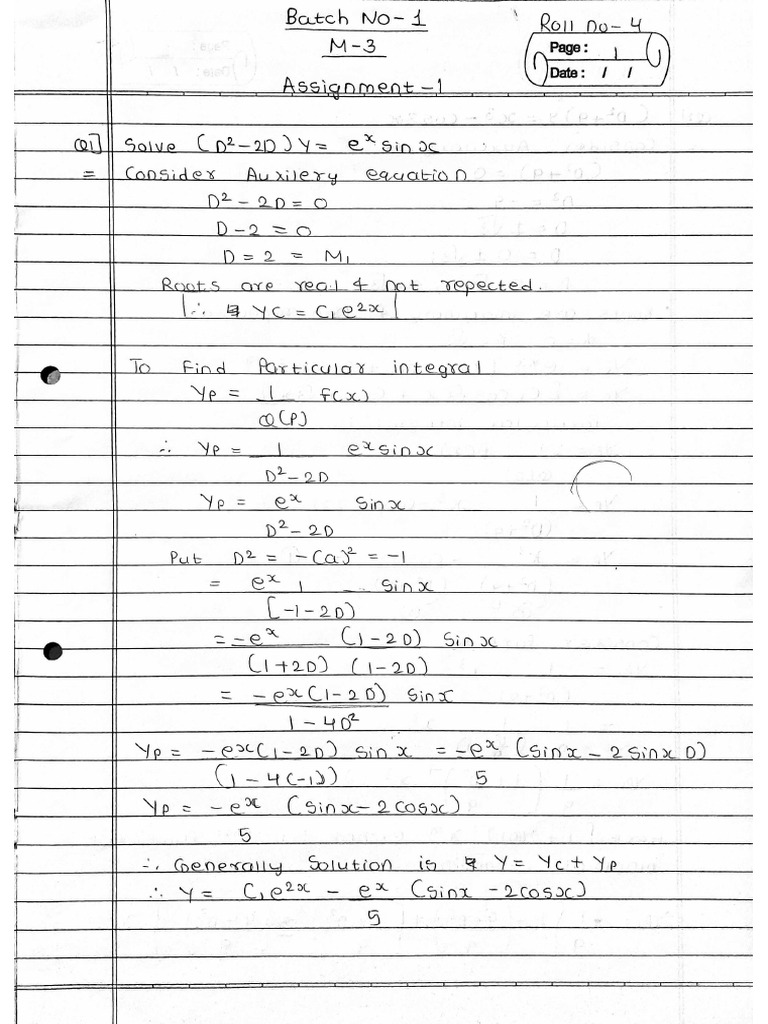 Batch No-1
Roll no-4
M-3
Page: 1
Date: / /
Assignment-1
Q1] Solve (D²-2D)Y = eˣ sinx
= Consider Auxilery equation
D² - 2D = 0
D-2 = 0
D = 2 = M₁
Roots are real & not repected.
∴ YC = C₁e²ˣ
To Find Particular integral
Yp = 1/Q(P) f(x)
∴ Yp = 1/(D²-2D) eˣsinx
Yp = eˣ/(D²-2D) sinx
Put D² = -(a)² = -1
= eˣ 1/[-1-2D) sinx
= -eˣ (1-2D) sinx / (1+2D) (1-2D)
= -eˣ(1-2D) sinx / 1-4D²
Yp = -eˣ(1-2D) sinx / (1-4(-1)) = -eˣ (sinx - 2sinx D) / 5
Yp = -eˣ (sinx-2cosx) / 5
∴ Generally Solution is Y = Yc + Yp
∴ Y = C₁e²ˣ - eˣ/5 (sinx -2cosx)